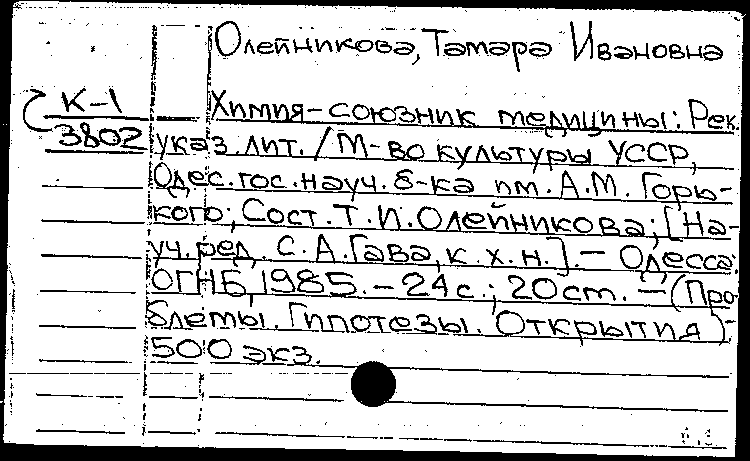 Олейникова, Тамара Ивановна
К-1
Химия-союзник медицины: Рек.
3802
указ. лит. / М-во культуры УССР,
Одес. гос. науч. б-ка им. А.М. Горь-
кого; Сост. Т.И. Олейникова; [На-
уч. ред. С.А. Гава, к.х.н.]. - Одесса:
ОГНБ, 1985. - 24 с.; 20 см. - (Про-
блемы. Гипотезы. Открытия) -
500 экз.